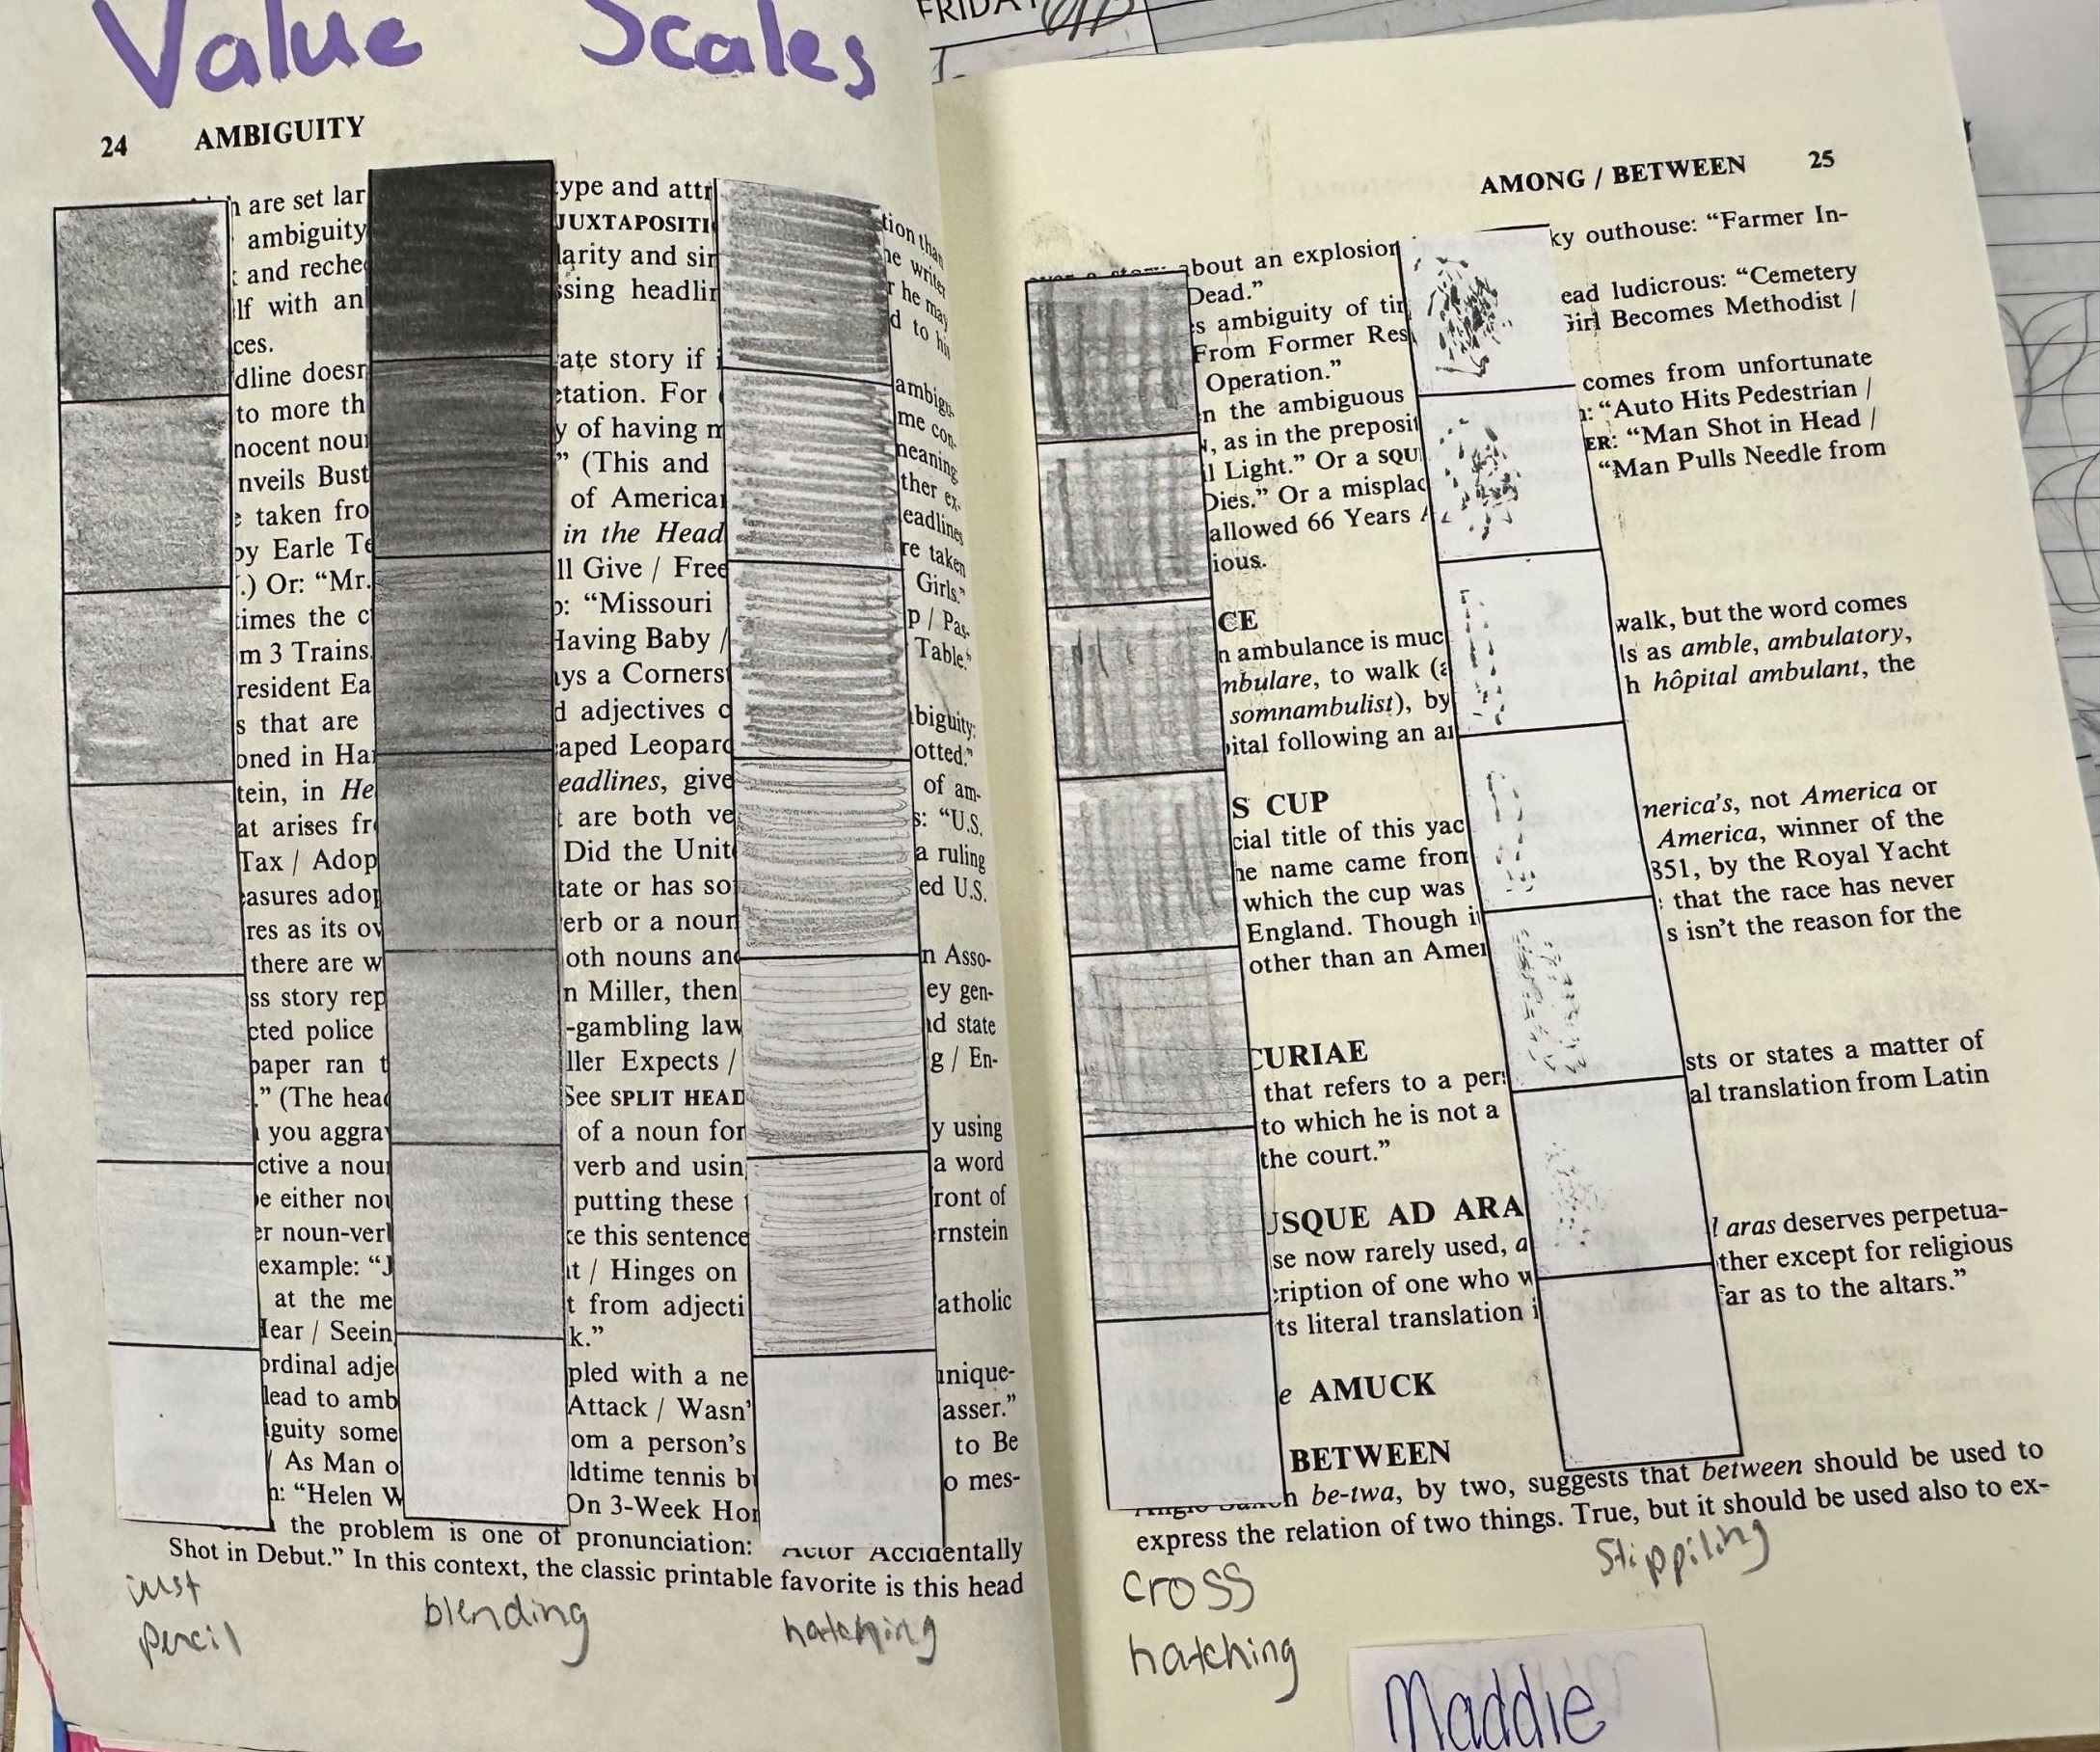 Value Scales
FRIDAY
24 AMBIGUITY
are set lar
ype and attr
tion than
ambiguity
JUXTAPOSITI
he writer
and reche
larity and sir
r he may
lf with an
ssing headlir
d to his
ces.
dline doesn
ate story if i
ambigu-
to more th
etation. For
me con-
nocent nour
y of having m
neaning
nveils Bust
” (This and
ther ex-
e taken fro
of America
eadlines
by Earle Te
in the Head
re taken
.) Or: “Mr.
ll Give / Free
Girls.”
times the c
o: “Missouri
p / Pas-
m 3 Trains.
Having Baby /
Table.”
resident Ea
ays a Corners
s that are
d adjectives o
biguity:
oned in Har
aped Leopard
otted.”
tein, in He
eadlines, give
of am-
at arises fr
are both ve
s: “U.S.
Tax / Adop
Did the Unit
a ruling
easures adop
tate or has so
ed U.S.
res as its ov
erb or a noun
there are w
oth nouns and
n Asso-
ss story rep
n Miller, then
ey gen-
cted police
-gambling law
nd state
paper ran t
ller Expects /
g / En-
.” (The head
See SPLIT HEAD
you aggra
of a noun for
y using
ctive a nour
verb and usin
a word
e either nou
putting these
ront of
er noun-verb
ke this sentence
rnstein
example: “J
it / Hinges on
at the me
t from adjecti
atholic
Hear / Seein
k.”
ordinal adje
pled with a ne
unique-
lead to amb
Attack / Wasn’
asser.”
iguity some
om a person’s
to Be
As Man o
ldtime tennis b
o mes-
n: “Helen W
On 3-Week Hor
the problem is one of pronunciation: Actor Accidentally
Shot in Debut.” In this context, the classic printable favorite is this head
just
pencil
blending
hatching
AMONG / BETWEEN 25
over a story about an explosion
ky outhouse: “Farmer In-
Dead.”
s ambiguity of tir
ead ludicrous: “Cemetery
From Former Res
Girl Becomes Methodist /
Operation.”
n the ambiguous
comes from unfortunate
, as in the preposit
: “Auto Hits Pedestrian /
l Light.” Or a SQU
ER: “Man Shot in Head /
Dies.” Or a misplac
“Man Pulls Needle from
allowed 66 Years A
ious.
CE
n ambulance is muc
walk, but the word comes
mbulare, to walk (a
ls as amble, ambulatory,
somnambulist), by
h hôpital ambulant, the
pital following an ar
S CUP
nerica’s, not America or
cial title of this yac
America, winner of the
he name came from
851, by the Royal Yacht
which the cup was
that the race has never
England. Though it
s isn’t the reason for the
other than an Amer
CURIAE
sts or states a matter of
that refers to a pers
al translation from Latin
to which he is not a
the court.”
USQUE AD ARA
l aras deserves perpetua-
se now rarely used, a
ther except for religious
cription of one who w
far as to the altars.”
ts literal translation i
e AMUCK
BETWEEN
n be-twa, by two, suggests that between should be used to
express the relation of two things. True, but it should be used also to ex-
cross
hatching
Stippiling
Maddie